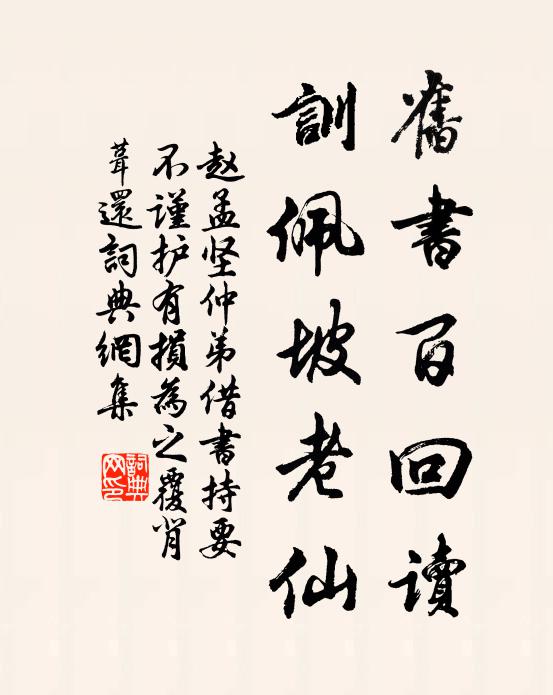 舊書百回讀
訓佩坡老仙
赵孟坚仲弟借書持要
不謹护有損為之覆肖
葺還詞典網集
詞典網印